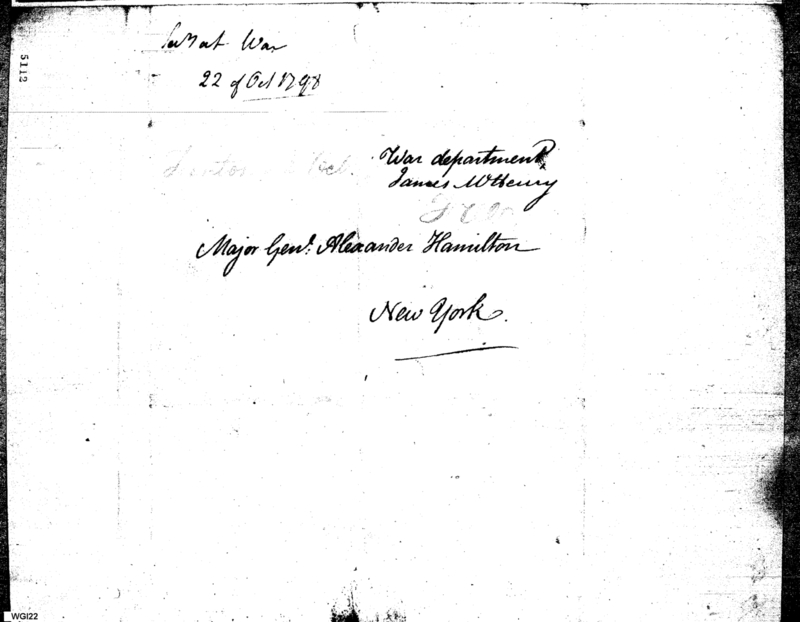 War
22 of Oct 1798
5112
War department
James McHenry
Major Genl. Alexander Hamilton
New York.
WGI22